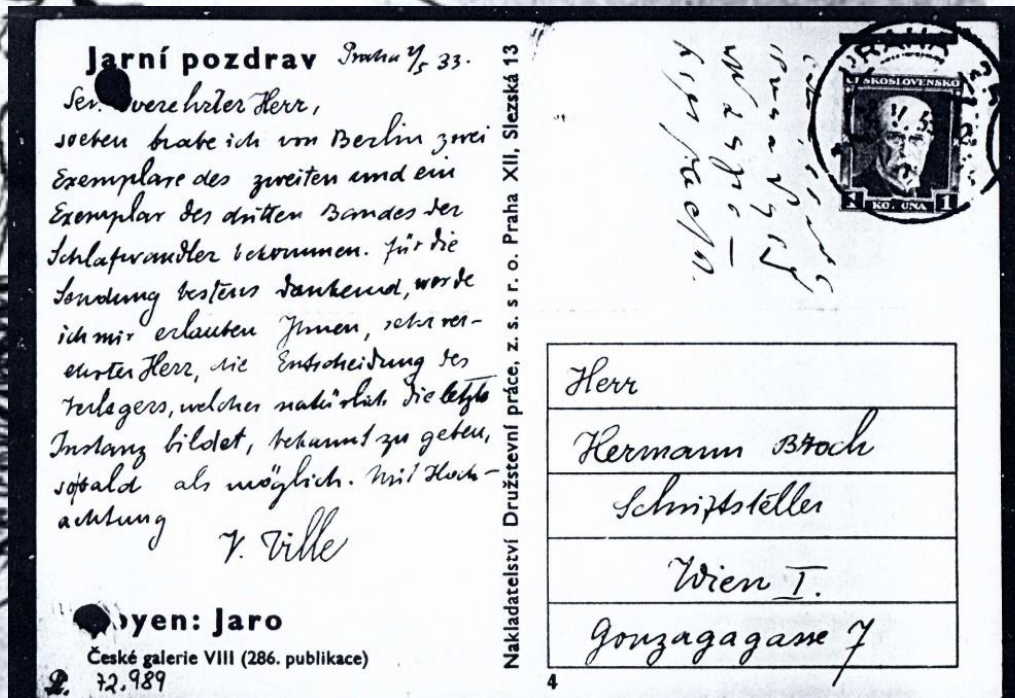 Jarní pozdrav Praha 2/5 33.
verehrter Herr,
soeben habe ich von Berlin zwei
Exemplare des zweiten und ein
Exemplar des dritten Bandes der
Schlafwandler bekommen. Für die
Sendung bestens dankend, werde
ich mir erlauben Ihnen, sehr ver-
ehrter Herr, die Entscheidung des
Verlegers, welcher natürlich die letzte
Instanz bildet, bekannt zu geben,
sobald als möglich. Mit Hoch-
achtung
V. Tille
oyen: Jaro
České galerie VIII (286. publikace)
72.989
Nakladatelství Družstevní práce, z. s. s r. o. Praha XII, Slezská 13
PRAHA
ČESKOSLOVENSKO
KORUNA 1
Herr
Hermann Broch
Schriftsteller
Wien I.
Gonzagagasse 7
4